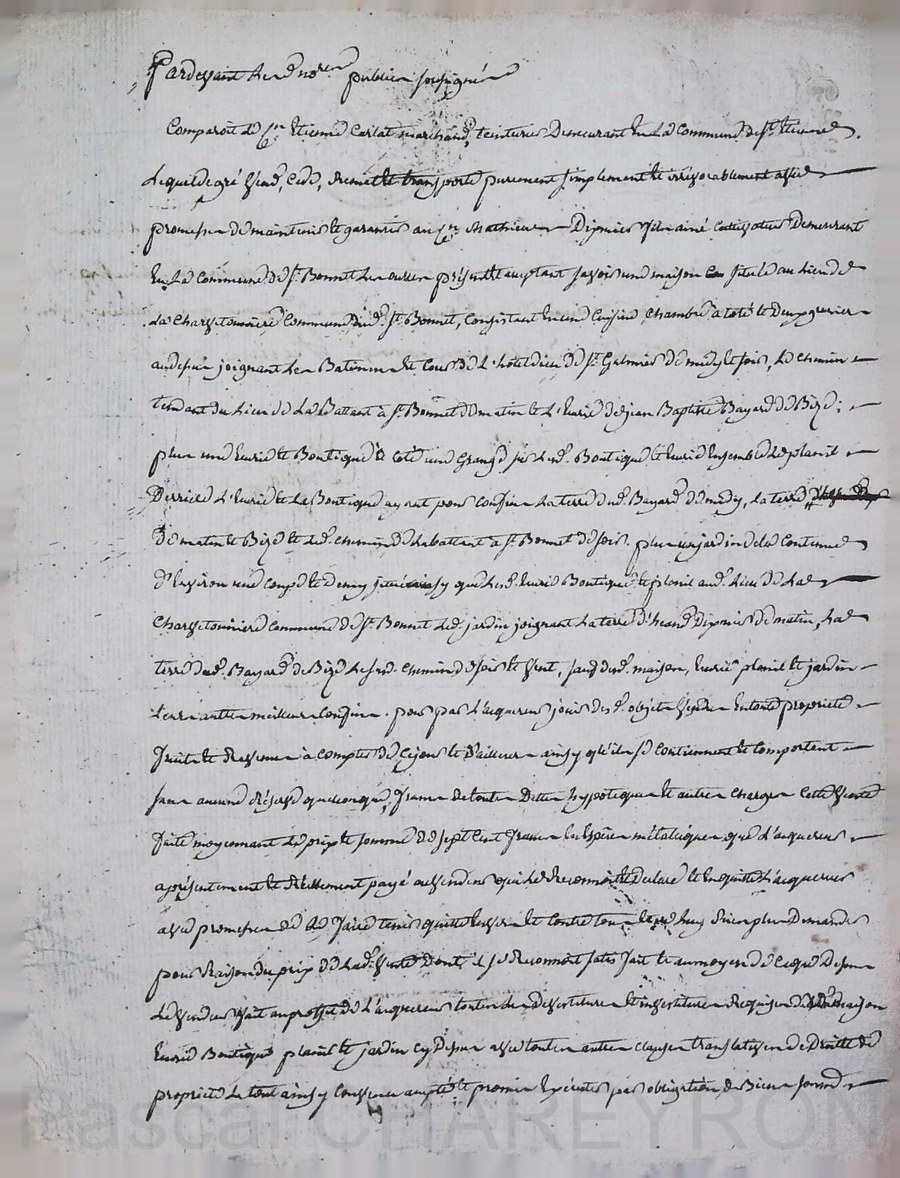 Pardevant Le nore public soussigné
Comparoit Le Cn Etienne Carlat marchand, teinturier Demeurant En La Commune de St Etienne
Lequel de gré Vend, Cede, Remet et transporte purement simplement et irrévocablement avec
promesse de maintenir et garantir au Cn Mathieu Dipnier fils ainé Cultivateur Demeurant
En La Commune de St Bonnet Les oulles présent et acceptant savoir une maison située au Lieu de
La Charsetonniere Commune dud. St Bonnet, Consistant En une Cuisine, Chambre a coté et Deux greniers
audessus joignant Les Batimens et Cour de L'hotel dieu de St Galmier de midy et soir, Le Chemin
tendant du Lieu de La Battant à St Bonnet de matin et L'Ecurie de jean Baptiste Bayard de Bize;
plus une Ecurie et Boutique à coté une Grange sur Lesd. Boutique et Ecurie Ensemble Le planil
Derriere L'Ecurie et La Boutique ayant pour Confins La terre dud. Bayard de midy, La terre
De matin et Bize et Led. chemin de Labattant à St Bonnet de soir. plus un jardin de la Contenue
D'Environ une coupe et demy, situé ainsy que Lesd. Ecurie Boutique et planil aud. Lieu de La
Charsetonniere Commune de St Bonnet Led. jardin joignant La terre d' Dipnier de matin, La
terre dud. Bayard de Bize Lesusd. chemin de soir et Vent, sauf desd. maison, Ecurie planil et jardin
Leurs autres meilleurs Confins. pour par L'acquereur jouir desd. objets Vendus En toute propriété
fruits et Revenus à compter de Cejour et D'ailleurs ainsy qu'ils se Contiennent et Comportent
sans aucune Réserve quelconque, francs de toutes Dettes hypoteques et autres Charges Cette Vente
faite moyennant Le prix et somme de sept Cent francs En Espèces métalliques que L'acquereur
a présentement et Réellement payé au Vendeur qui Le Reconnoit et Declare et En quitte L'acquereur
avec promesse de Le faire tenir quitte Envers et Contre tous
pour Raison du prix de Lad. Vente dont il se Reconnoit satisfait et au moyen de Ceque Dessus
Le Vendeur fait au profit de L'acquereur toutes Devestitures et investitures Requises de maison
Ecurie Boutique planil et jardin cy Dessus avec toutes autres clauses translatives de Droits de
propriété Le tout ainsy Convenu accepté et promis Executer par obligation de Biens soumd
Pascal CHAREYRON